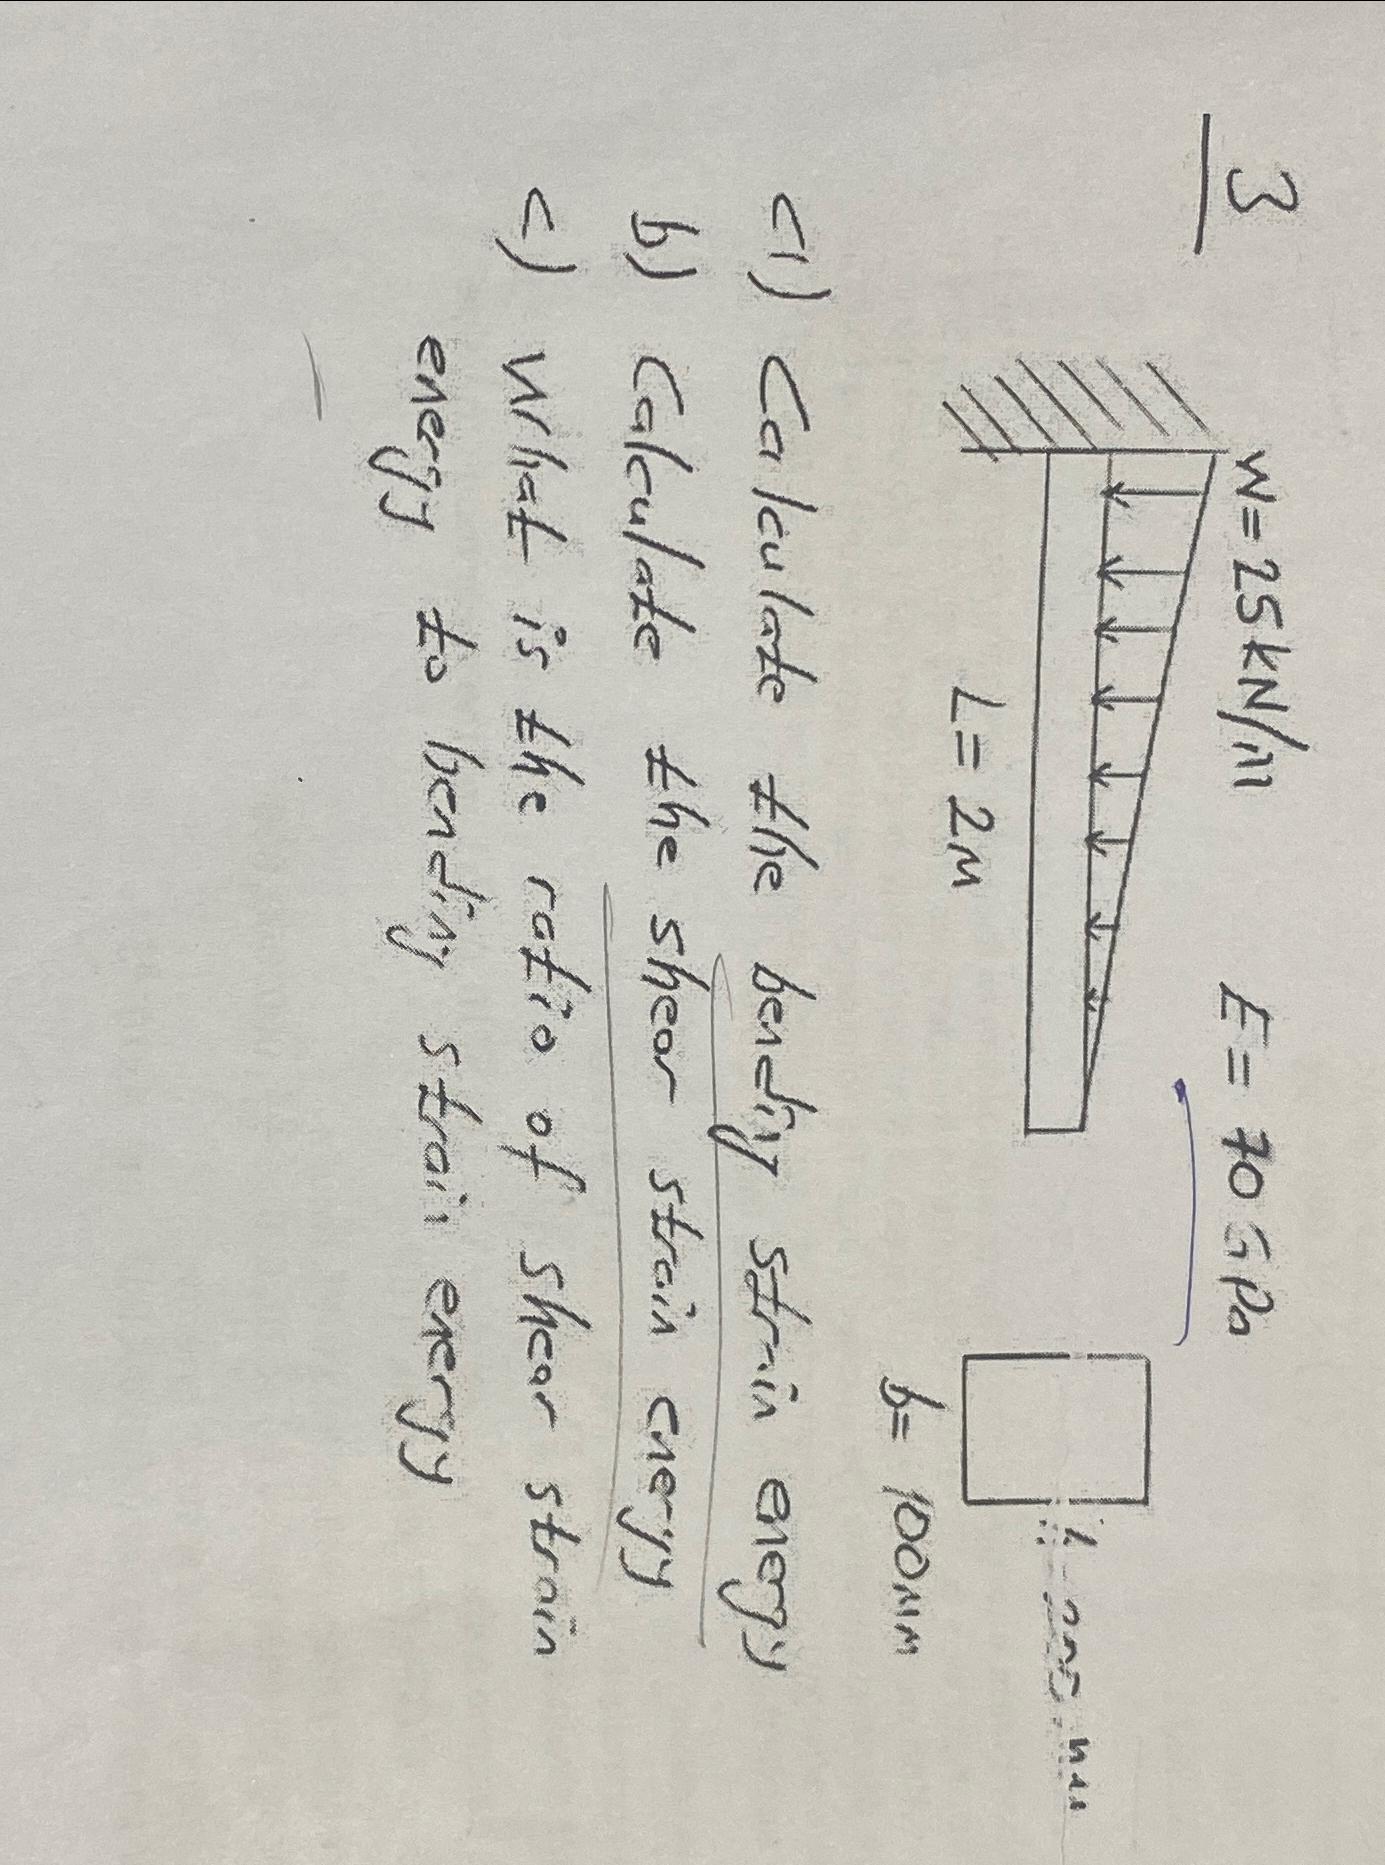 3
W=25kN/m
E= 70GPa
L= 2M
b= 100MM
a) Calculate the bending strain energy
b) Calculate the shear strain energy
c) What is the ratio of shear strain
energy to bending strain energy